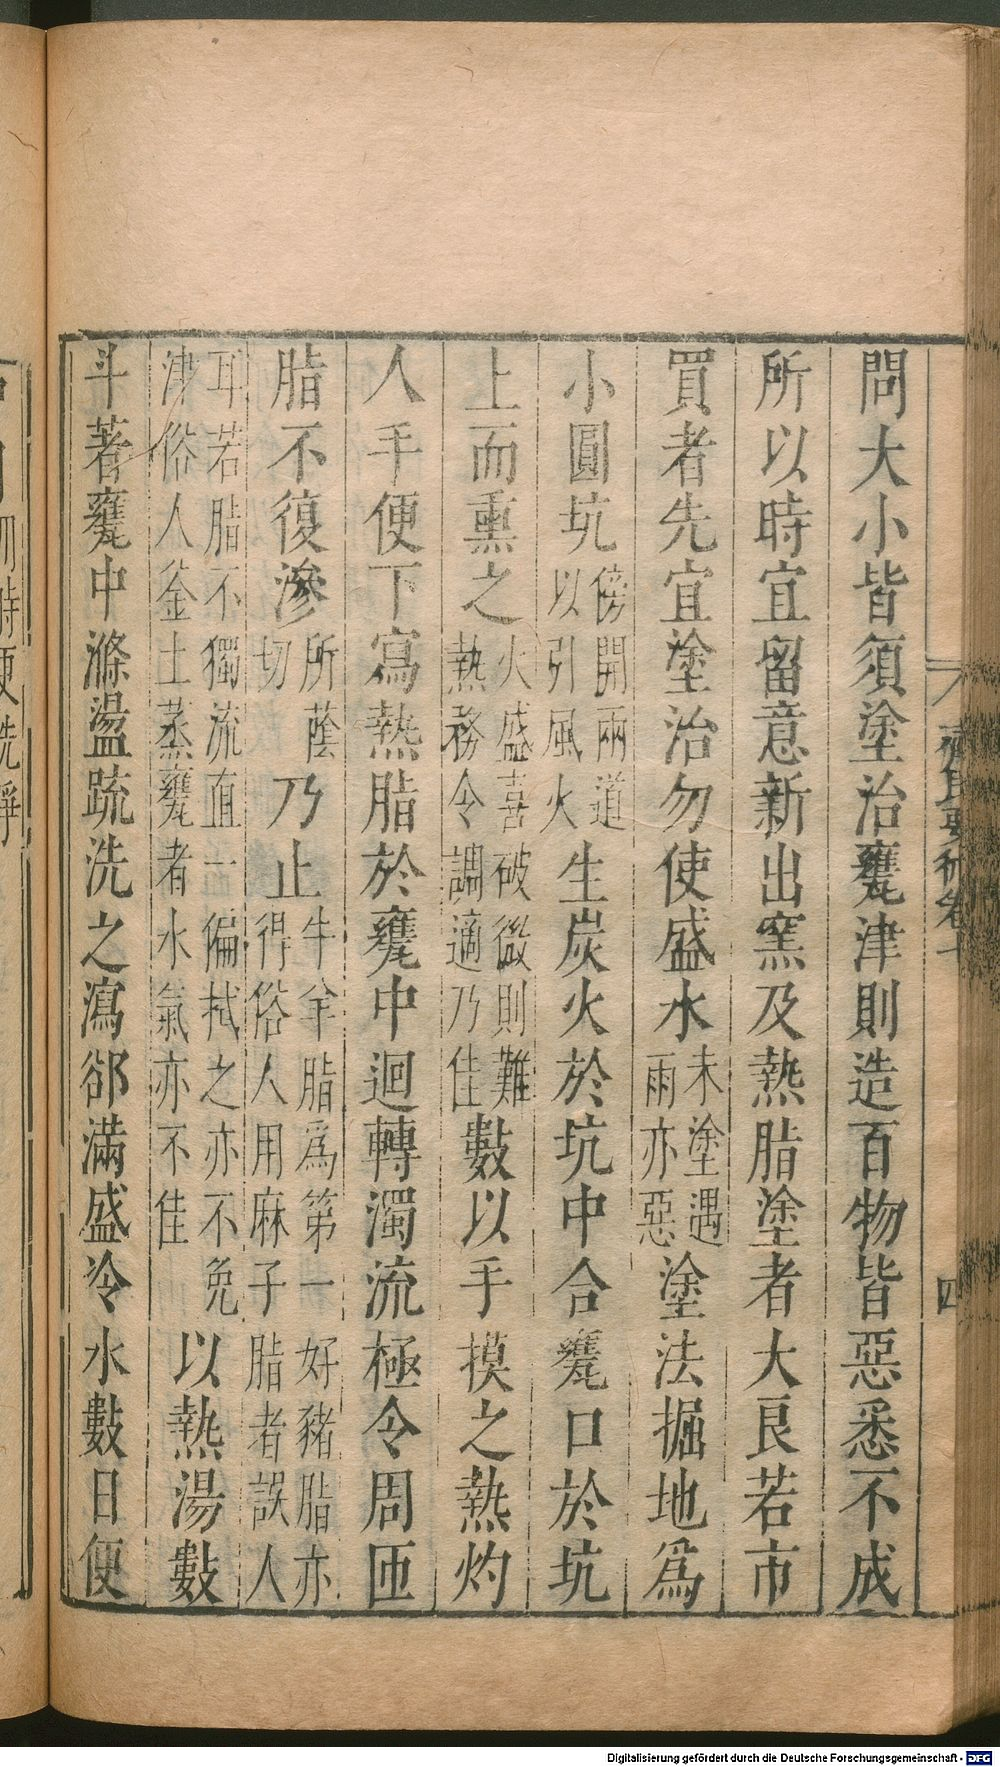 問大小皆須塗治甕津則造百物皆惡悉不成
所以時宜留意新出窯及熱脂塗者大良若市
買者先宜塗治勿使盛水未塗遇雨亦惡塗法掘地為
小圓坑傍開兩道以引風火生炭火於坑中合甕口於坑
上而熏之火盛喜破微則難熱務令調適乃佳數以手摸之熱灼
人手便下寫熱脂於甕中迴轉濁流極令周匝
脂不復滲所蔭切乃止牛羊脂為第一好豬脂亦得俗人用麻子脂者誤人
耳若脂不獨流直一偏拭之亦不免津俗人釜土蒸甕者水氣亦不佳以熱湯數
斗著甕中滌盪疏洗之瀉郤滿盛冷水數日便
齊民要術卷七
四
四時便洗淨
Digitalisierung gefördert durch die Deutsche Forschungsgemeinschaft - DFG